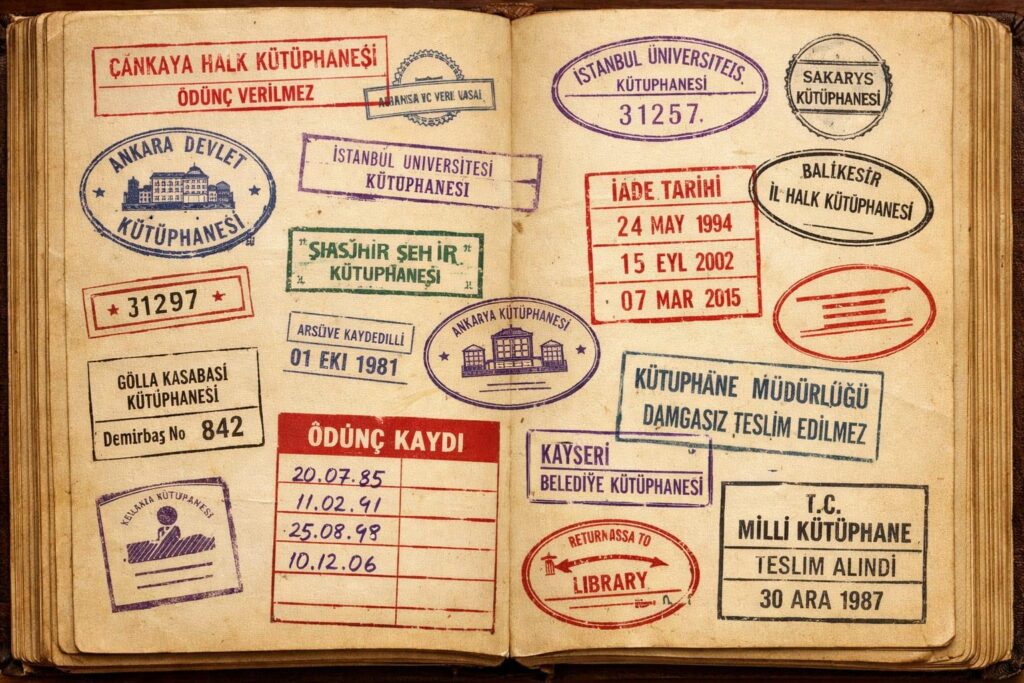 ÇANKAYA HALK KÜTÜPHANEŞİ
ÖDÜNÇ VERİLMEZ
ANKARA DEVLET
KÜTÜPHANEŞİ
İSTANBUL ÜNIVERSİTESİ
KÜTÜPHANESI
ŞIASJHİR ŞEH İR
KÜTUPHANEŞİ
31297
ARSÜVE KAYDEDILLİ
01 EKI 1981
ANKARYA KÜTÜPHANEŞİ
GÖLLA KASABASİ
KÜTÜPHANEŞİ
Demirbaş No 842
ÖDÜNÇ KAYDI
20.07.85
11.02.91
25.08.98
10.12.06
KÜTÜPANESİ
İSTANBUL ÜNİVERSİTEİS.
KÜTÜPHANESİ
31257.
SAKARYS
KÜTÜPHANESİ
İADE TARİHİ
24 MAY 1994
15 EYL 2002
07 MAR 2015
BALİKESİR
İL HALK KÜTÜPHANESİ
KÜTUPHANE MÜDÜRLÜĞÜ
DAMGASIZ TESLİM EDİLMEZ
KAYSERİ
BELEDİYE KÜTÜPHANESİ
RETURNASSA TO
LIBRARY
T.C.
MİLLİ KÜTÜPHANE
TESLIM ALINDİ
30 ARA 1987